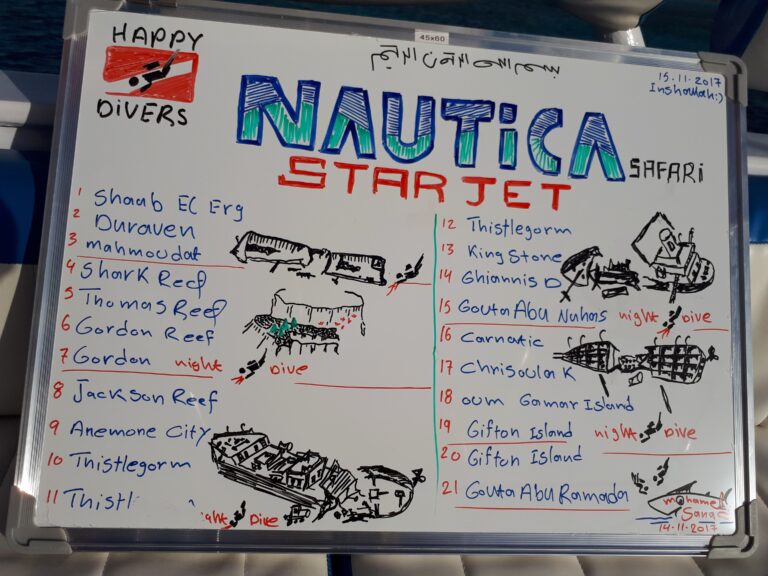 45x60
بسم الله الرحمن الرحيم
HAPPY
DiVERS
15.11.2017
Inshallah:)
NAUTiCA
SAFARi
STAR JET
1 Shaab El Erg
2 Duraven
3 mahmoudat
4 Shark Reef
5 Thomas Reef
6 Gordon Reef
7 Gordon night Dive
8 Jackson Reef
9 Anemone City
10 Thistlegorm
11 Thistl night Dive
12 Thistlegorm
13 King Stone
14 Ghiannis D
15 Gouta Abu Nuhas night Dive
16 Carnatic
17 Chrisoula K
18 oum Gamar Island
19 Gifton Island night Dive
20 Gifton Island
21 Gouta Abu Ramada
mohamed
14.11.2017